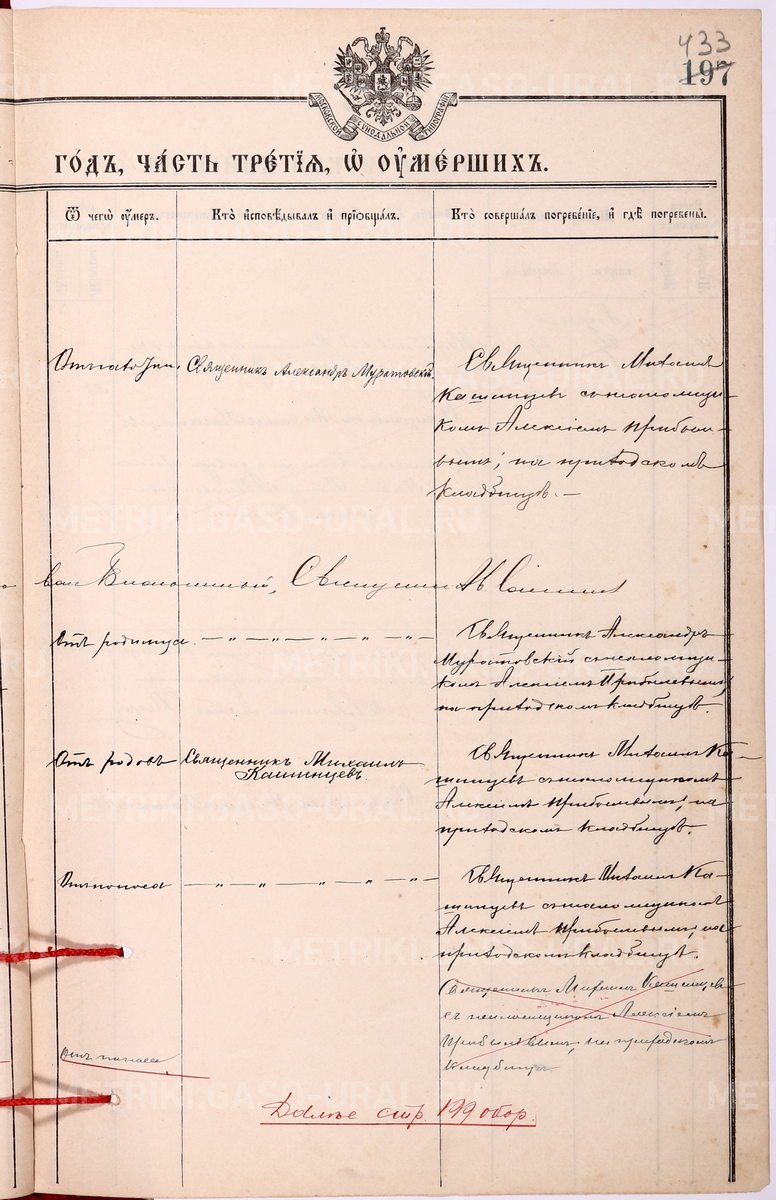 433
197
МОСКОВСКОЙ СѴНОДАЛЬНОЙ ТИПОГРАФІИ
ГО́ДЪ, ЧА́СТЬ ТРЕ́ТІЯ, Ѡ҆ ОУ҆МЕ́РШИХЪ.
Ѿ чегѡ̀ оу҆́меръ.
Кто̀ и҆сповѣ́дывалъ и҆ прїѡбща́лъ.
Кто̀ соверша́лъ погребе́нїе, и҆ гдѣ̀ погребены̀.
Священникъ Александръ Муратовскій.
Священникъ Михаилъ
Кашинцевъ съ псаломщи-
комъ Алексіемъ Прибыле-
вымъ; на приходскомъ
кладбищѣ. —
Священник
Отъ родимца. — „ — „ — „ — „ —
Священникъ Александръ
Муратовскій съ псаломщи-
комъ Алексіемъ Прибылевымъ,
на приходскомъ кладбищѣ.
Отъ родовъ
Священникъ Михаилъ
Кашинцевъ.
Священникъ Михаилъ Ка-
шинцевъ съ псаломщикомъ
Алексіемъ Прибылевымъ, на
приходскомъ кладбищѣ.
Отъ поноса — „ — „ — „ — „ — „ —
Священникъ Михаилъ Ка-
шинцевъ съ псаломщикомъ
Алексіемъ Прибылевымъ, на
приходскомъ кладбищѣ.
Священникъ Михаилъ Кашинцевъ
съ псаломщикомъ Алексіемъ
Прибылевымъ, на приходскомъ
кладбищѣ
Отъ поноса
Далѣе стр. 199 обор.
METRIKI.GASO-URAL.RU